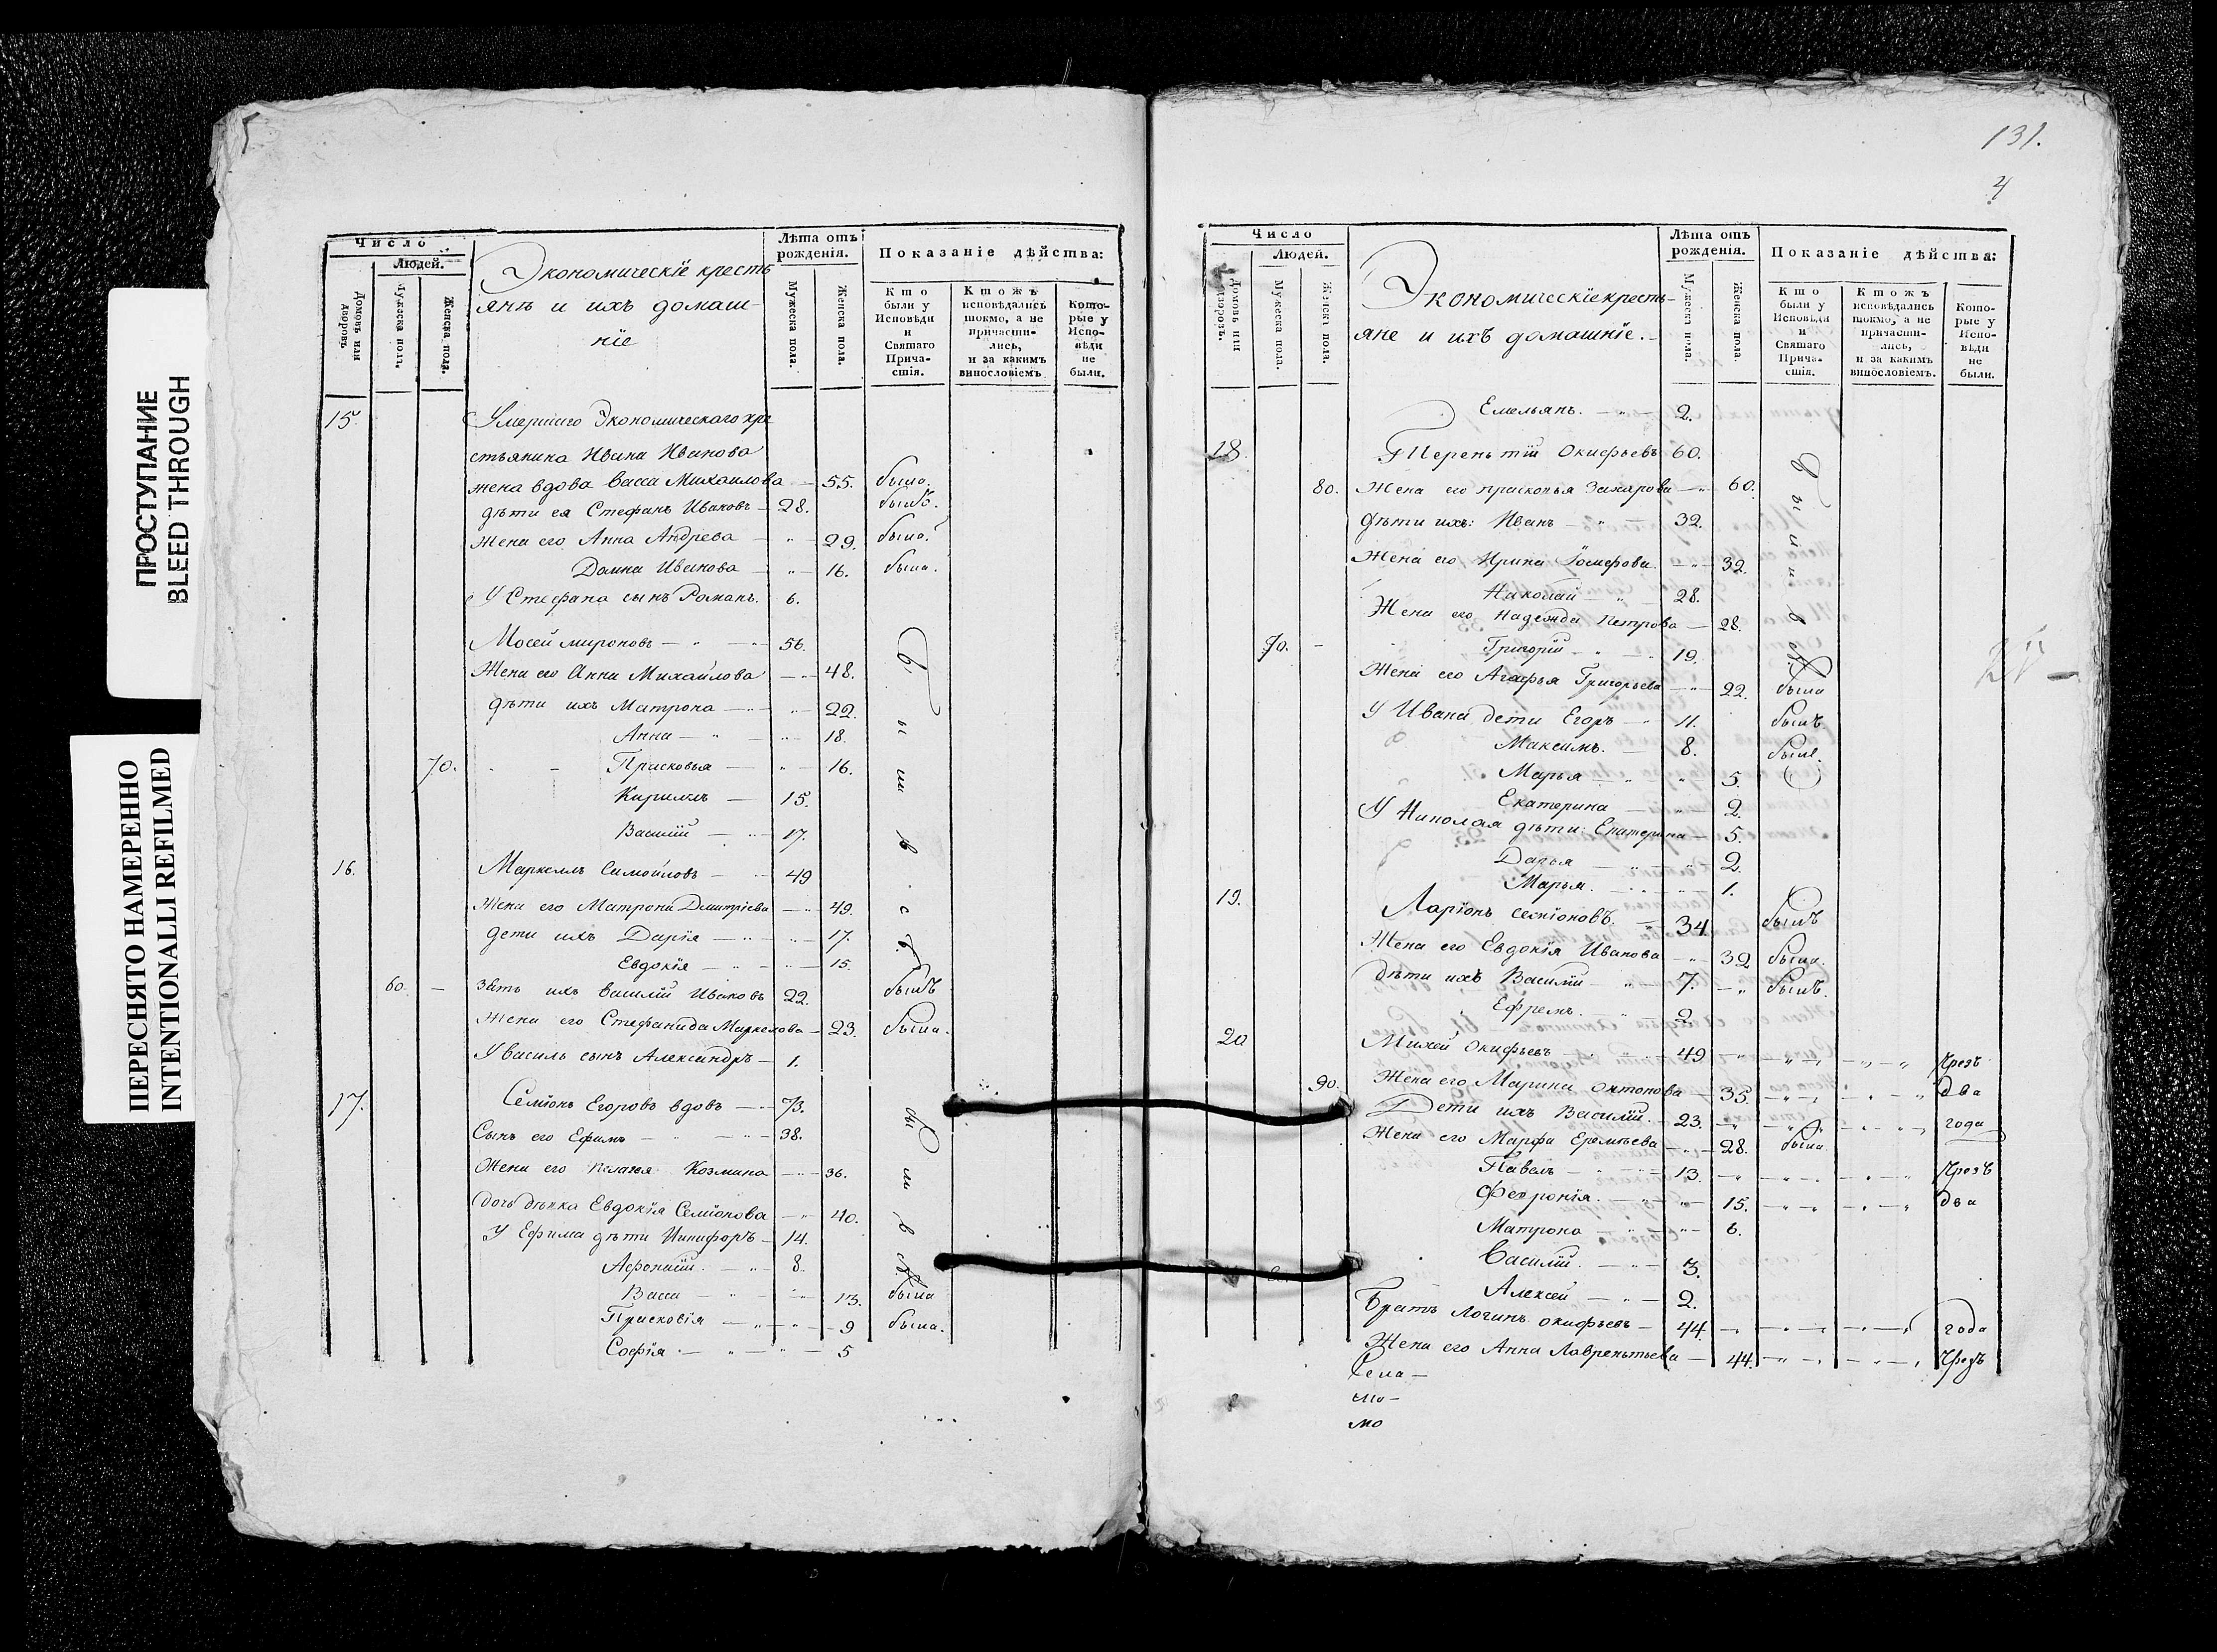 ПРОСТУПАНИЕ
BLEED THROUGH
ПЕРЕСНЯТО НАМЕРЕННО
INTENTIONALLI REFILMED
Число
Людей.
Домовъ или дворовъ
Мужеска пола.
Женска пола.
Экономическїе кресть
янъ и ихъ домаш-
нїе
Лѣта отъ рождения.
Мужеска пола.
Женска пола.
Показанїе дѣйства:
Кто были у Исповѣди и Святаго Причастїя.
Ктожъ исповѣдались токмо, а не причастились, и за какимъ винословїемъ.
Которые у Исповѣди не были.
15. Умершаго Экономическаго кре
стьянина Ивана Иванова
жена вдова Васса Михаилова — 55. была.
дѣти ея Стефанъ Ивановъ — 28. былъ.
Жена его Анна Андрева — 29. была.
Домна Иванова — 16. была.
У Стефана сынъ Романъ. 6.
Мосей мироновъ — 56.
Жена его Анна Михаилова — 48.
дѣти ихъ Матрона — 22.
Анна — 18.
70. Прасковья — 16.
Кирилъ — 15.
Василїй — 17.
16. Маркелъ Самойловъ — 49
Жена его Матрона Дмитрїева — 49.
дети ихъ Дарїя — 17.
Евдокїя — 15.
60. — Зять ихъ Василїй Ивановъ 22. былъ
Жена его Стефанида Маркелова — 23. была.
У Василь сынъ Александръ — 1.
17. Семїонъ Егоровъ вдовъ — 73.
Сынъ его Ефимъ — 38.
Жена его Пелагея Козмина — 36.
дочь дѣвка Евдокїя Семїонова — 40.
У Ефима дѣти Никифоръ — 14.
Афонасїй. — 8.
Васса — 13. была
Прасковїя — 9 была.
Софїя — 5
131.
4
Число
Людей.
Домовъ или дворовъ.
Мужеска пола.
Женска пола.
Экономическїе кресть-
яне и ихъ домашнїе.
Лѣта отъ рождения.
Мужеска пола.
Женска пола.
Показанїе дѣйства:
Кто были у Исповѣди и Святаго Причастїя.
Ктожъ исповѣдались токмо, а не причастились, и за какимъ винословїемъ.
Которые у Исповѣди не были.
Емельянъ. — 2.
18. Терентїй Окифьевъ 60.
80. Жена его прасковья Захарова — 60.
дѣти ихъ: Иванъ — 32.
Жена его Ирина Їосифова. — 32.
Николай — 28.
Жена его Надежда Петрова — 28.
70. — Григорїй — 19.
Жена его Агафья Григорьева — 22. была
У Ивана дети Егоръ — 11. былъ
Максимъ. — 8. былъ.
Марья — 5.
Екатерина — 2.
У Николая дѣти: Екатерина — 5.
Дарья — 2.
Марья. — 1.
19. Ларїонъ семїоновъ. — 34. былъ
Жена его Евдокїя Иванова — 32 была.
дѣти ихъ Василїй — 7. — былъ.
Ефремъ. — 2.
20 Михей Окифьевъ — 49 — Чрезъ
90. Жена его Марина антонова — 35. — два
Дети ихъ Василїй. — 23. — года
Жена его Марфа Еремѣева — 28. была
Павелъ — 13. — Чрезъ
Февронїя. — 15. — два
Матрона — 6.
Василїй. — 3.
Алексей — 2.
Братъ Логинъ окифьевъ — 44. — года
Жена его Анна Лаврентьева — 44. — Чрезъ